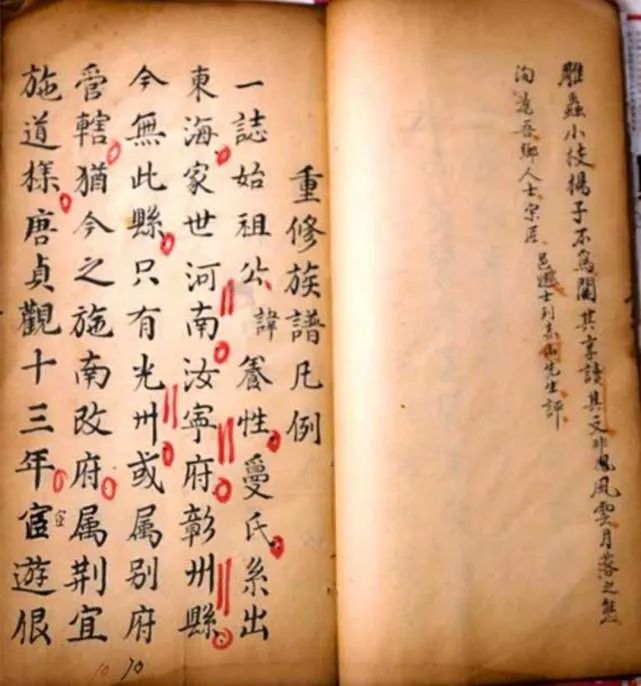 雕蟲小枝揚子不為其享讀其文非風雲月落之態
洵吾鄉人士宗匠邑士列先生評
重修族譜凡例
一誌始祖公諱養性曼氏系出
東海家世河南汝寧府彰州縣
今無此縣只有光州或属别府
管轄猶今之施南改府属荆宜
施道樣唐貞觀十三年宦遊佷
宦
10 70